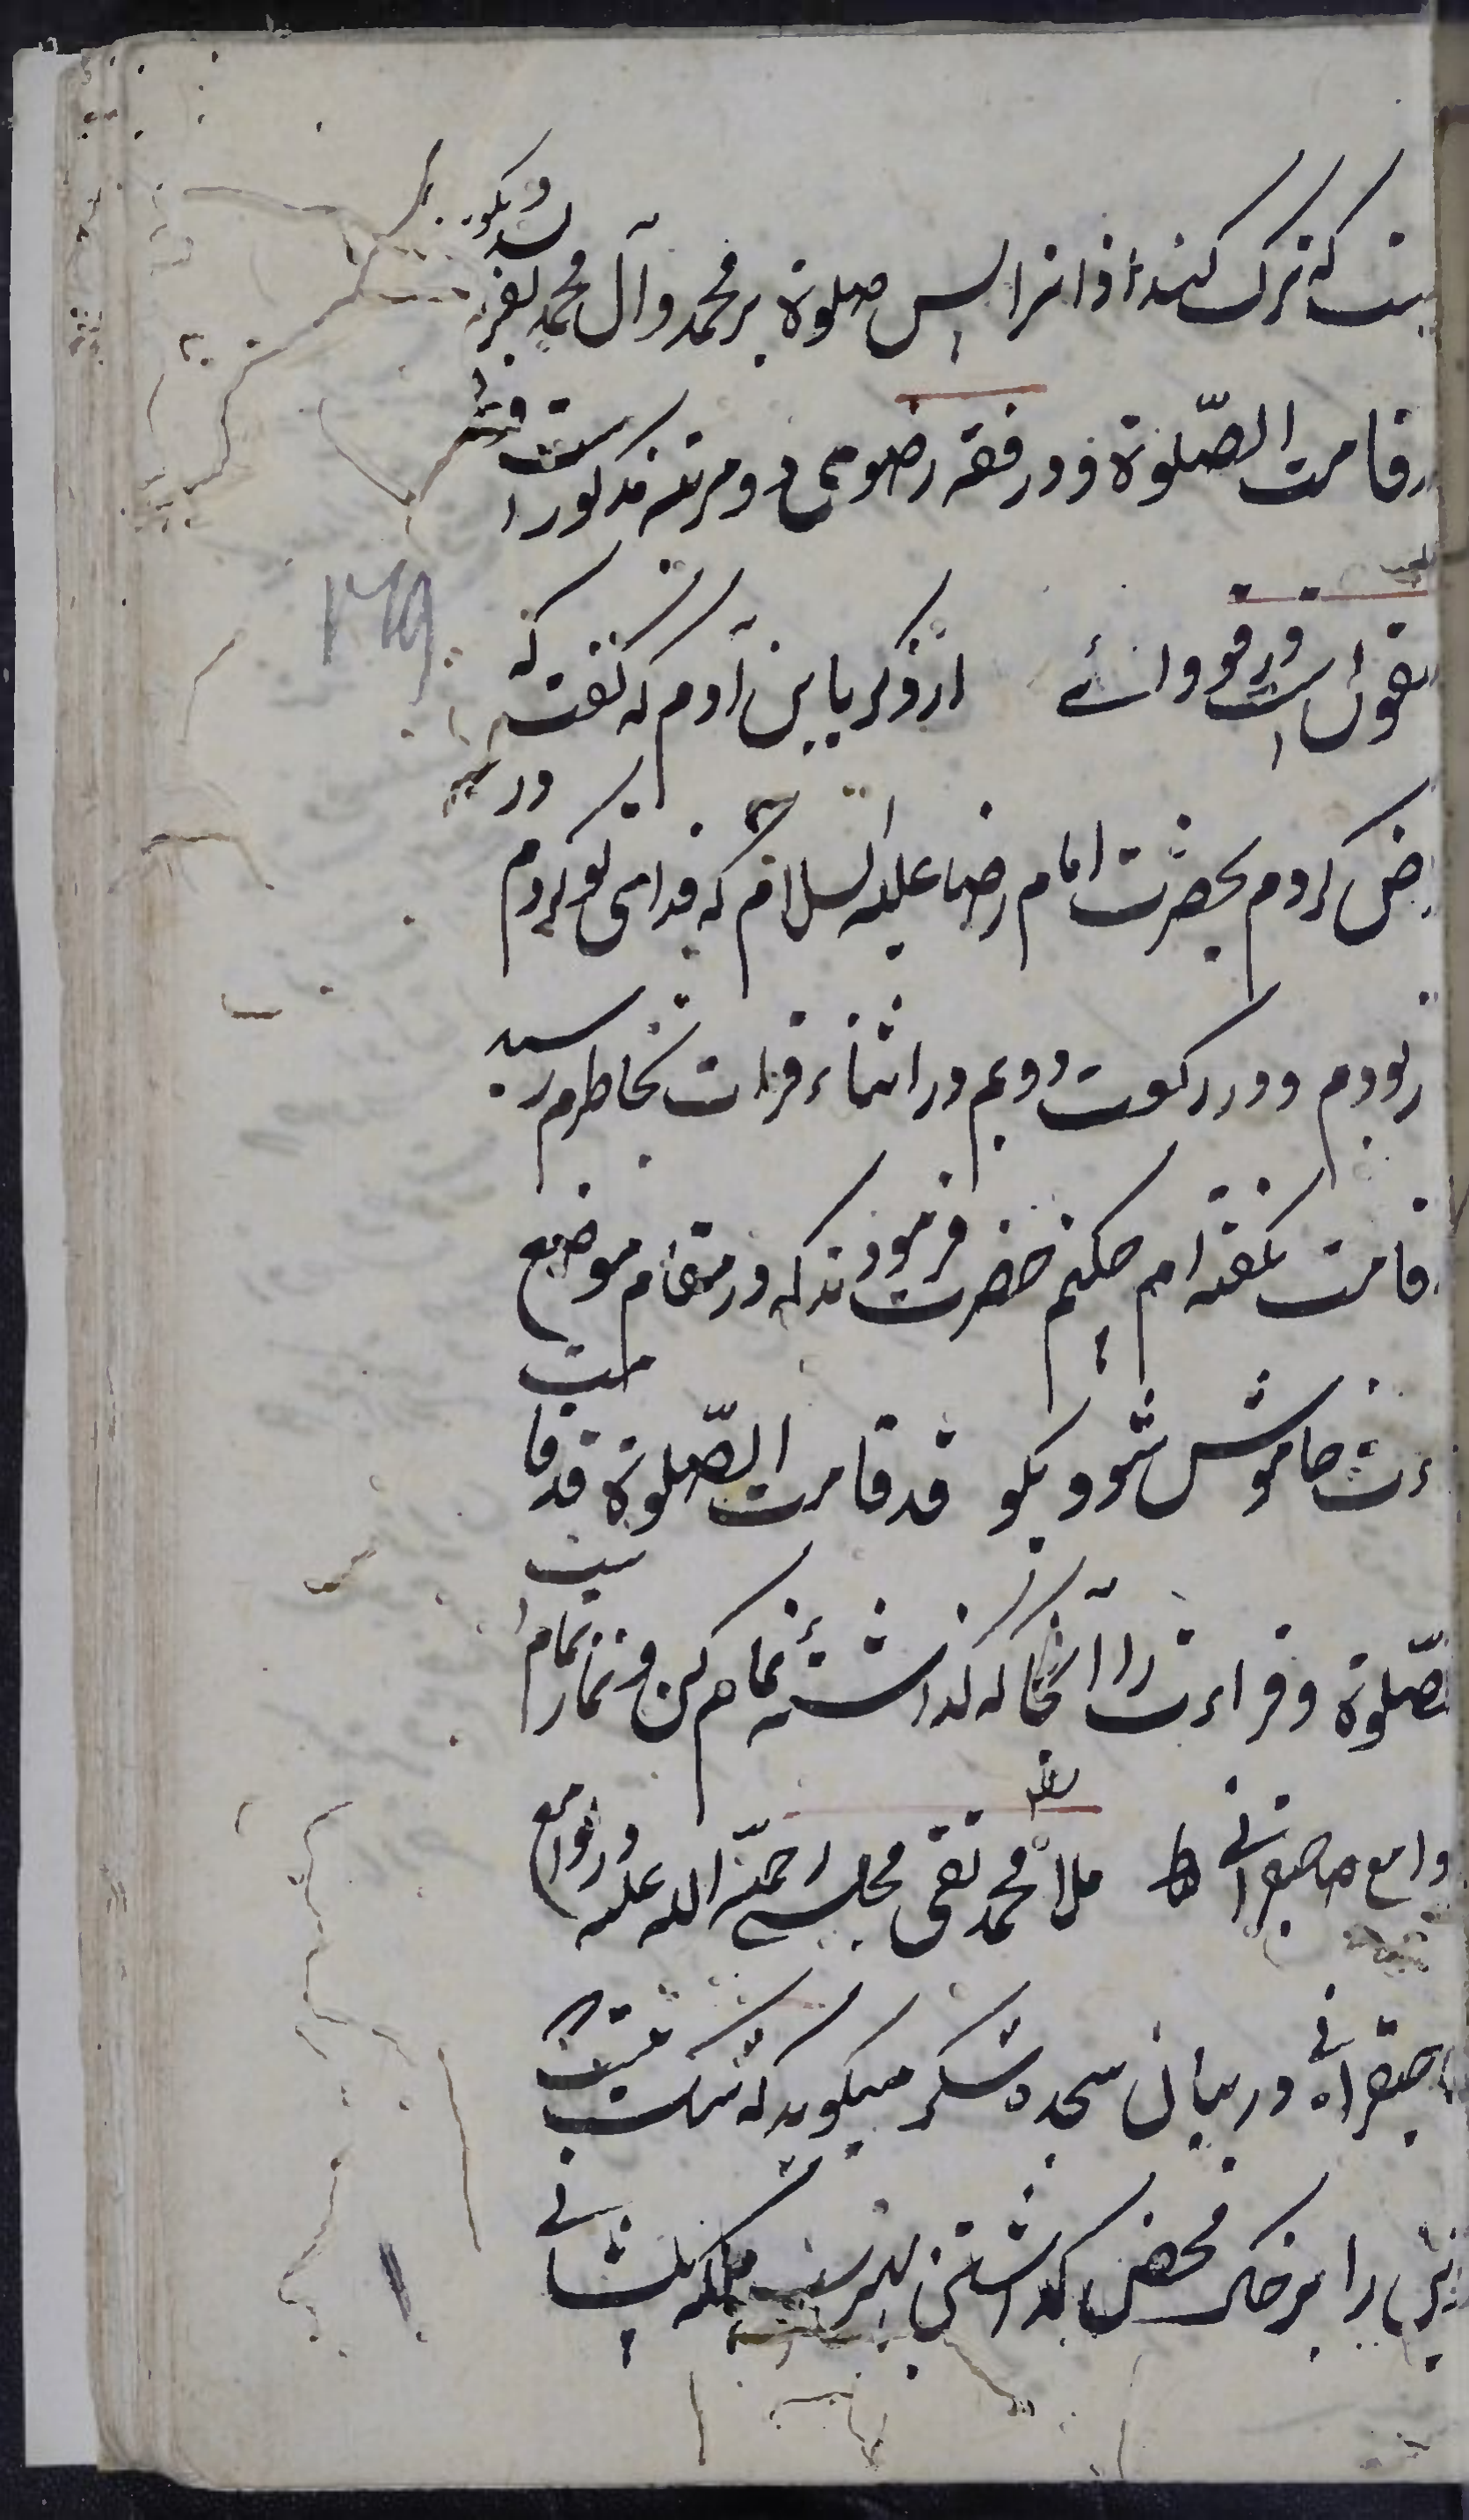 ست که ترک کند اذانرا پس صلوة بر محمد وآل محمد بفرستد وبگوید
قد قامت الصّلوة ودر فقه رضوی دو مرتبه مذکور است
منقول است در وافی از ذکریا بن آدم که گفت که
عرض کردم بحضرت امام رضا علیه السلام که فدای تو کردم در
بودم ودر رکعت دویم در اثناء قرات بخاطرم رسید
قامت نگفته ام چکنم حضرت فرمودند که در مقام موضع
ءت خاموش شو وبگو قد قامت الصّلوة قد قامت
الصّلوة وقراءت را از آنجا که گذاشتهٔ تمام کن ونماز تمام است
لوامع صاحبقرانی ملا محمد تقی مجلسی رحمة الله علیه در لوامع
صاحبقرانی در بیان سجده شکر میگوید که شک نیست
را بر خاک محض گذاشتن بلکه پیشانی
۱۴۹